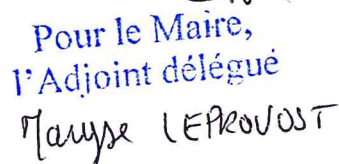 Pour le Maire,
l'Adjoint délégué
Maryse LEPROVOST